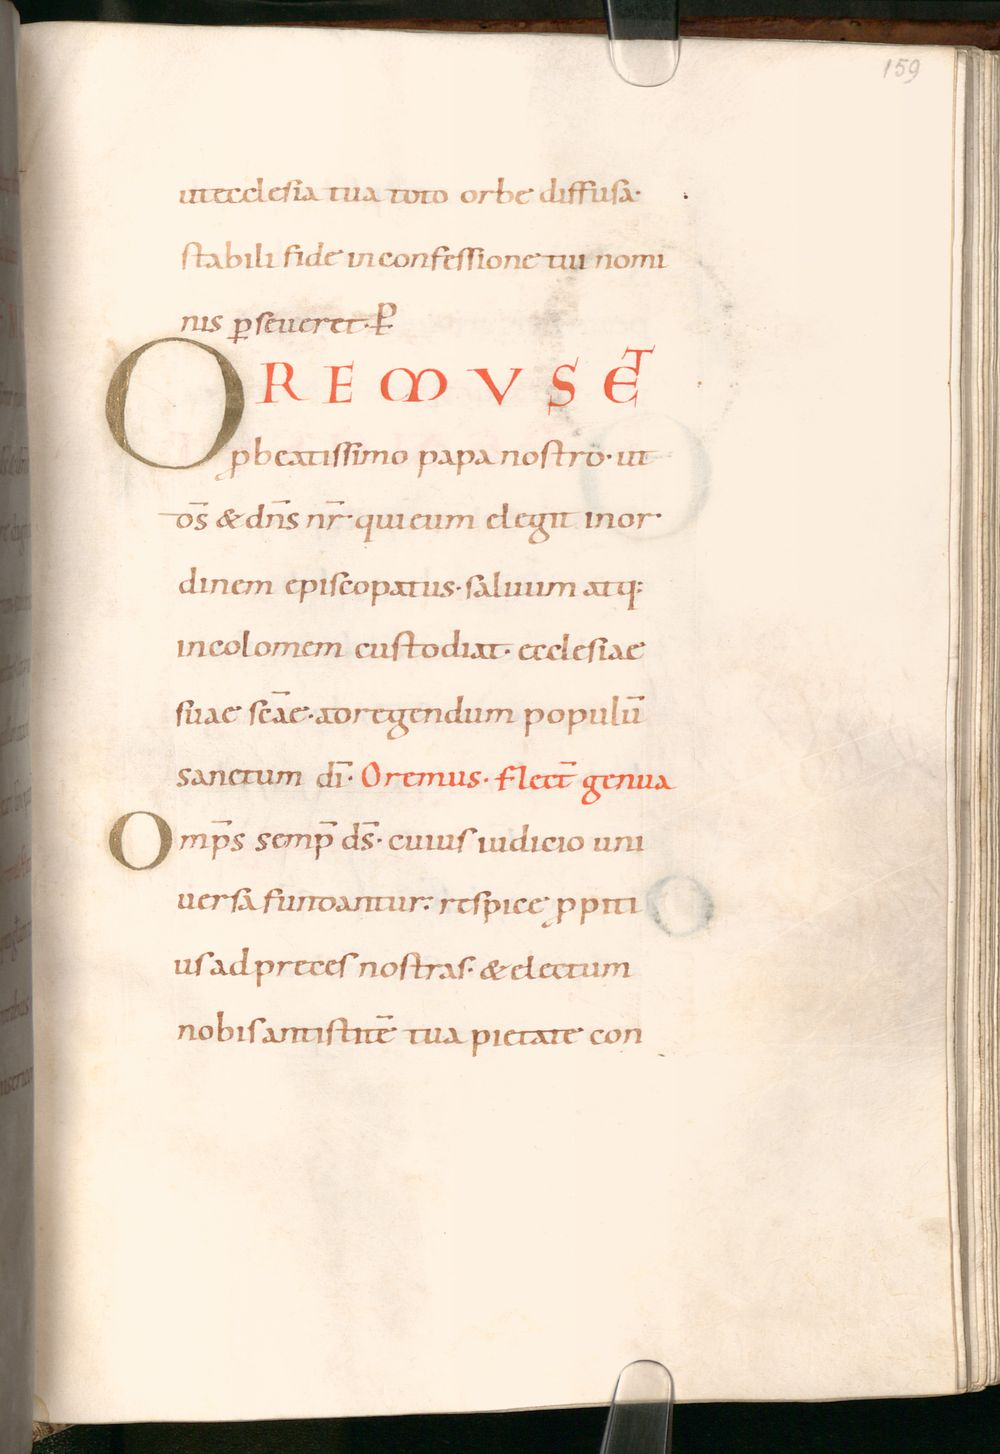 159
utecclesia tua toto orbe diffusa·
stabili fide inconfessione tui nomi
nis ꝑseueret· ꝑ
OREMVS ET
ꝓbeatissimo papa nostro· ut
d̄s & dn̄s nr̄· quieum elegit inor·
dinem episcopatus· saluum atq:
incolomem custodiat· ecclesiae
suae sc̄ae· adregendum populū
sanctum dī· Oremus· flect̄ genua
Omp̄s semp̄ ds̄· cuius iudicio uni
uersa fundantur: respice ꝓpiti
us adpreces nostras· & electum
nobis antistitē tua pietate con